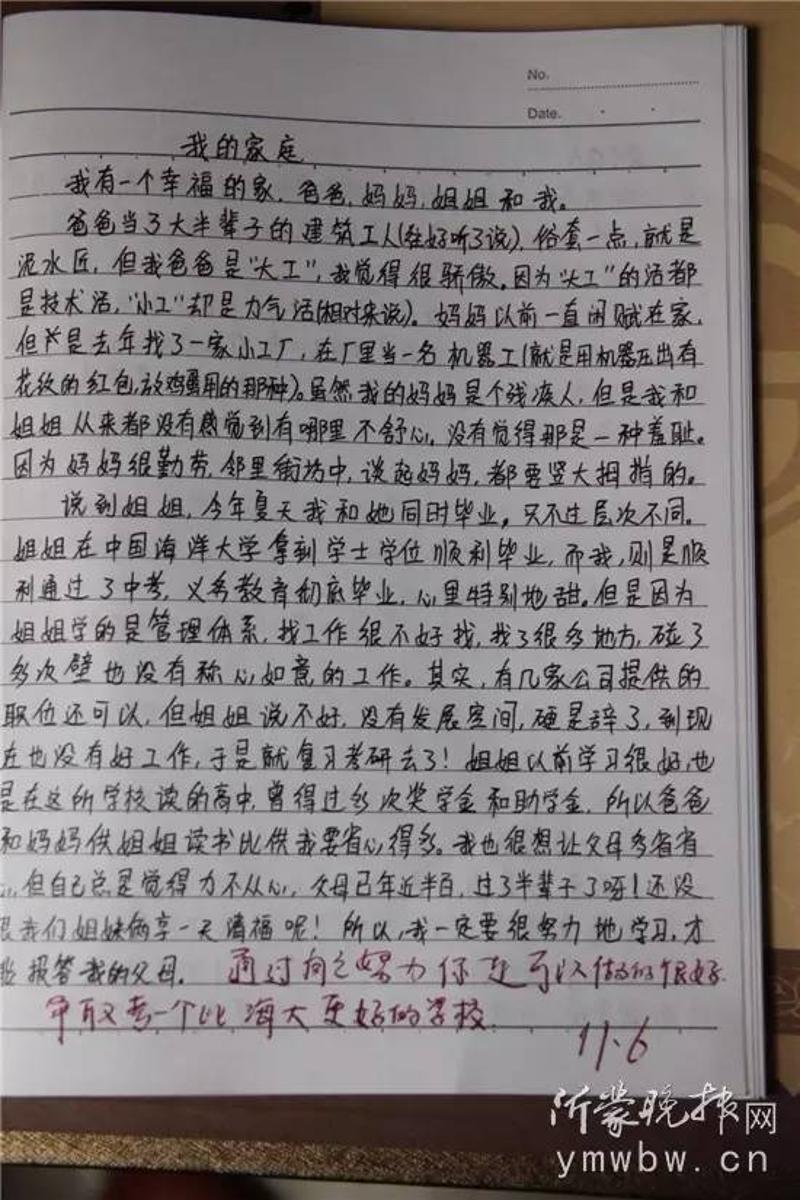 No.
Date.
我的家庭
我有一个幸福的家,爸爸,妈妈,姐姐和我。
爸爸当了大半辈子的建筑工人(往好听了说),俗套一点,就是
泥水匠,但我爸爸是“大工”,我觉得很骄傲。因为“大工”的活都
是技术活,“小工”却是力气活(相对来说)。妈妈以前一直闲赋在家,
但是去年找了一家小工厂,在厂里当一名机器工(就是用机器压出有
花纹的红包,放鸡蛋用的那种)。虽然我的妈妈是个残疾人,但是我和
姐姐从来都没有感觉到有哪里不舒心,没有觉得那是一种羞耻。
因为妈妈很勤劳,邻里街坊中,谈起妈妈,都要竖大拇指的。
说到姐姐,今年夏天我和她同时毕业,只不过层次不同。
姐姐在中国海洋大学拿到学士学位顺利毕业,而我,则是顺
利通过了中考,义务教育彻底毕业,心里特别地甜。但是因为
姐姐学的是管理体系,找工作很不好找,找了很多地方,碰了
多次壁也没有称心如意的工作。其实,有几家公司提供的
职位还可以,但姐姐说不好,没有发展空间,硬是辞了,到现
在也没有好工作,于是就复习考研去了!姐姐以前学习很好,也
是在这所学校读的高中,曾得过多次奖学金和助学金,所以爸爸
和妈妈供姐姐读书比供我要省心得多。我也很想让父母多省省
心,但自己总是觉得力不从心,父母已年近半百,过了半辈子了呀!还没
跟我们姐妹俩享一天清福呢!所以,我一定要很努力地学习,才
能报答我的父母。 通过自己努力你是可以做的很好.
争取考一个比海大更好的学校.
11.6
沂蒙晚报网
ymwbw.cn